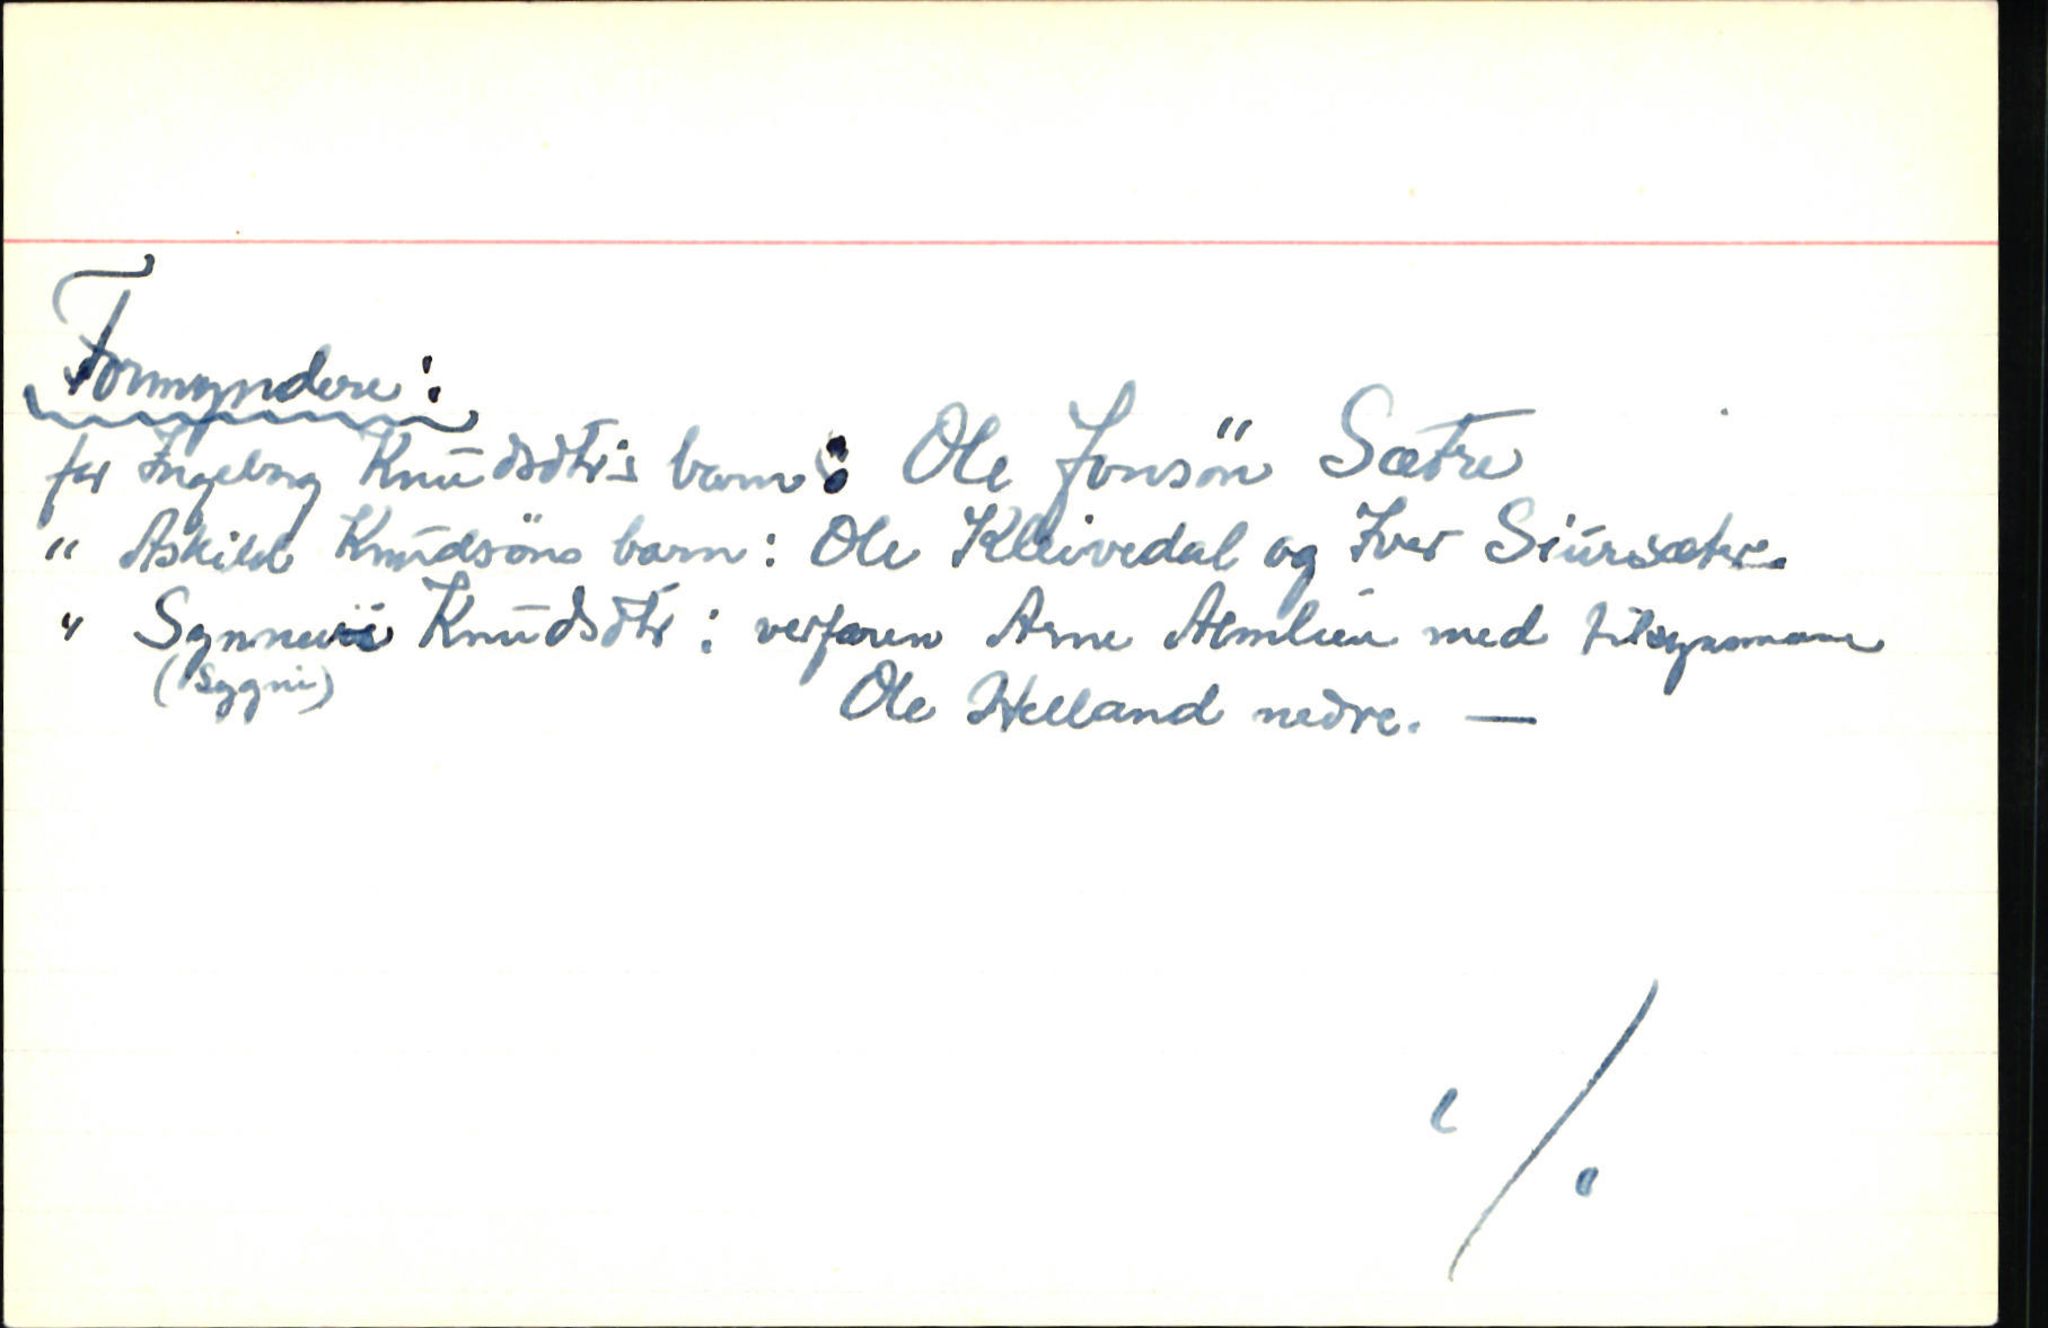 Formyndere:
for Ingebrg Knūdsdtr's barn: Ole Jonsön Sætre
" Askild Knūdsöns barn: Ole Kleivedal og Iver Siūrsæter.
" Synnevi Knūdsdtr: verfaren Arne Almlien med tilsynsmann
(Sygni) Ole Helland nedre. —